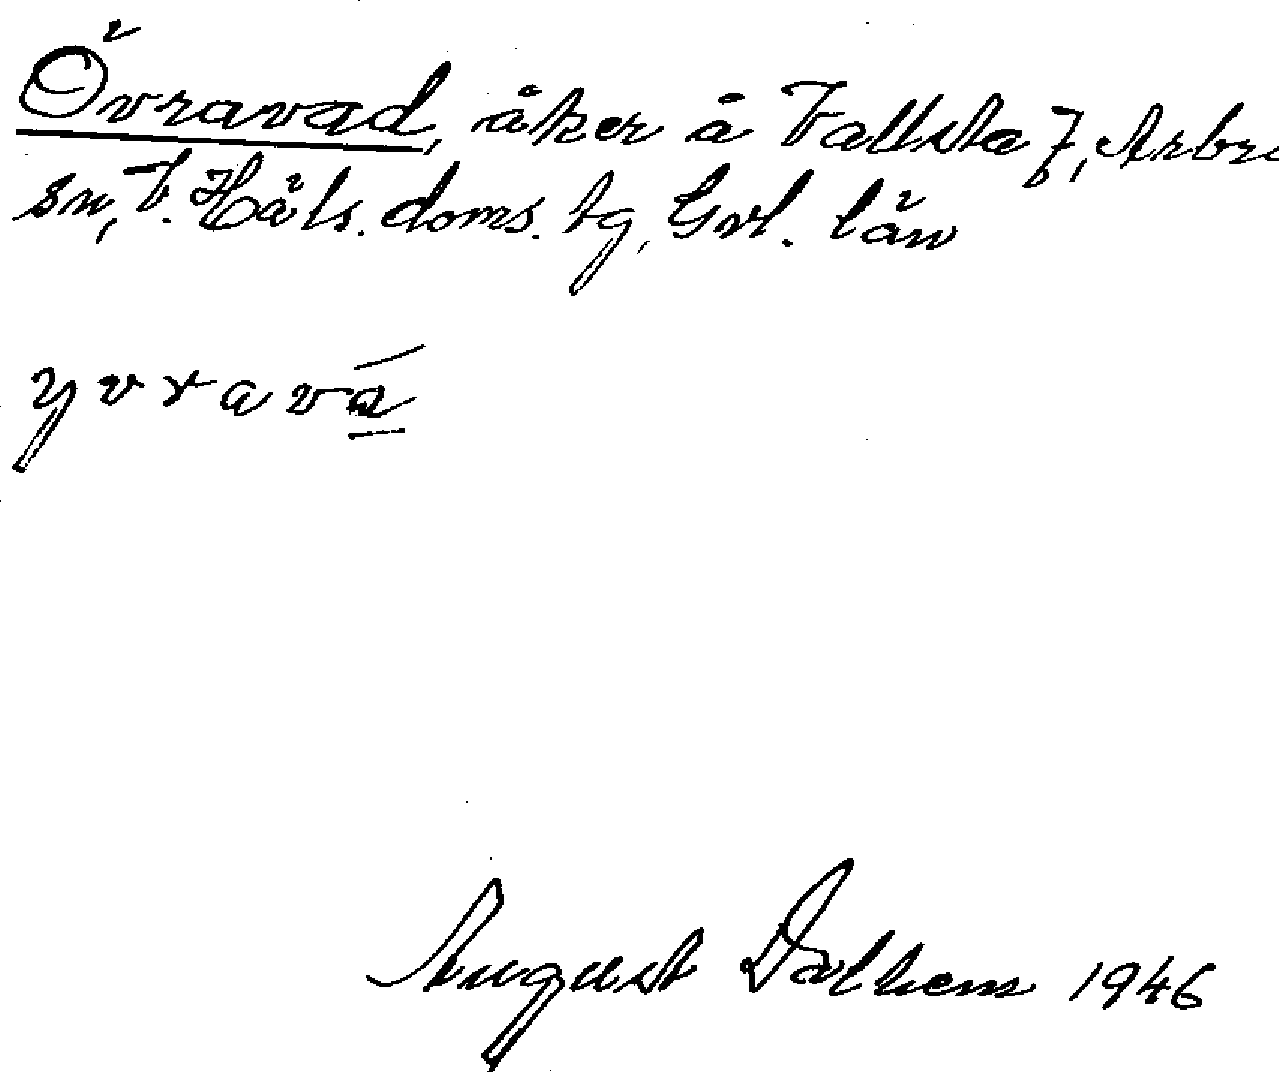 Övravad, åker å Vallsta 7, Arbrå
sn, V. Häls. doms. tg, Gvl. län
yvravá̱
August Dalhem 1946